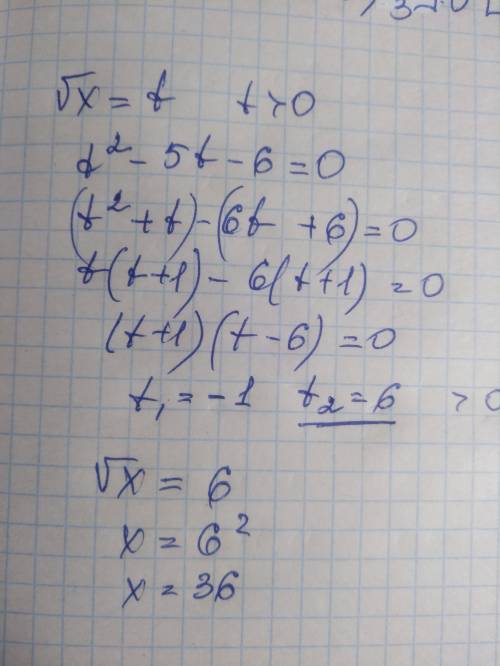 √x = t t > 0
t² - 5t - 6 = 0
(t² + t) - (6t + 6) = 0
t(t+1) - 6(t+1) = 0
(t+1)(t-6) = 0
t₁ = -1 t₂ = 6 > 0
√x = 6
x = 6²
x = 36